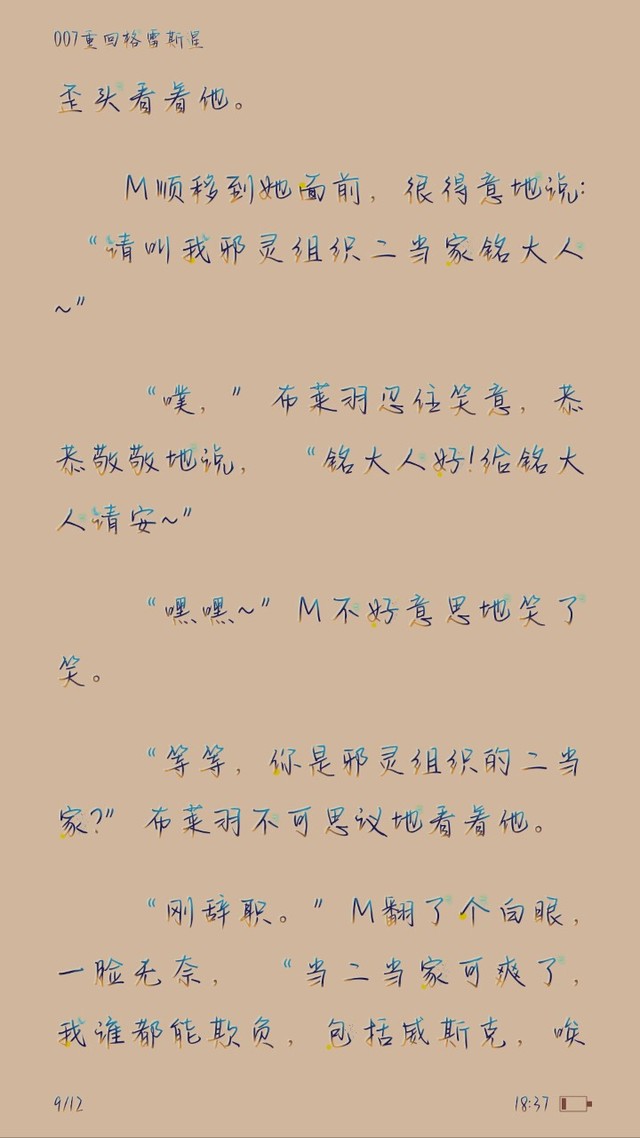 007重回格雷斯星
歪头看着他。
M顺移到她面前，很得意地说：
“请叫我邪灵组织二当家铭大人
~”
“噗，”布莱羽忍住笑意，恭
恭敬敬地说，“铭大人好！给铭大
人请安~”
“嘿嘿~”M不好意思地笑了
笑。
“等等，你是邪灵组织的二当
家？”布莱羽不可思议地看着他。
“刚辞职。”M翻了个白眼，
一脸无奈，“当二当家可爽了，
我谁都能欺负，包括威斯克，唉
9/12
18:37